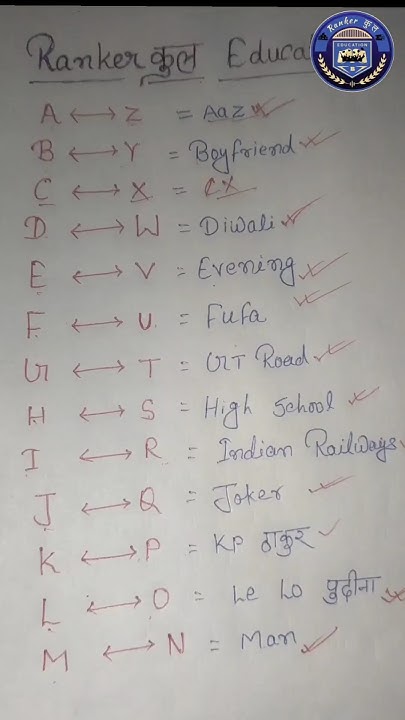 Ranker कुल Educa
Ranker कुल
EDUCATION
A ⟷ Z = AaZ
B ⟷ Y = Boyfriend
C ⟷ X = CX
D ⟷ W = Diwali
E ⟷ V = Evening
F ⟷ U = Fufa
G ⟷ T = GT Road
H ⟷ S = High School
I ⟷ R = Indian Railways
J ⟷ Q = Joker
K ⟷ P = KP ठाकुर
L ⟷ O = Le Lo पुदीना
M ⟷ N = Man